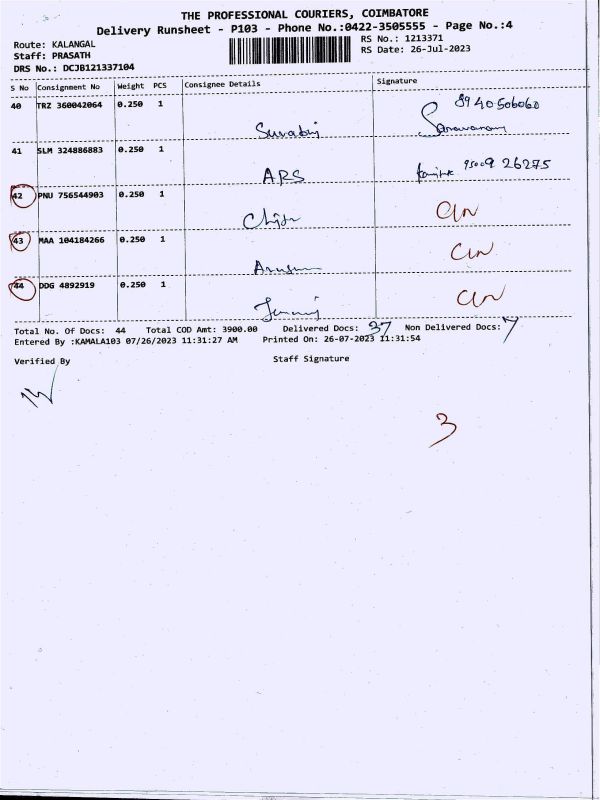 THE PROFESSIONAL COURIERS, COIMBATORE
Delivery Runsheet - P103 - Phone No.:0422-3505555 - Page No.:4
Route: KALANGAL RS No.: 1213371
Staff: PRASATH RS Date: 26-Jul-2023
DRS No.: DCJB121337104
S No Consignment No Weight PCS Consignee Details Signature
40 TRZ 360042064 0.250 1 8940506060
Saravanan
41 SLM 324886883 0.250 1
APS 95009 26275
42 PNU 756544903 0.250 1
43 MAA 104184266 0.250 1
44 DDG 4892919 0.250 1
Total No. Of Docs: 44 Total COD Amt: 3900.00 Delivered Docs: 37 Non Delivered Docs: 7
Entered By :KAMALA103 07/26/2023 11:31:27 AM Printed On: 26-07-2023 11:31:54
Verified By Staff Signature
3